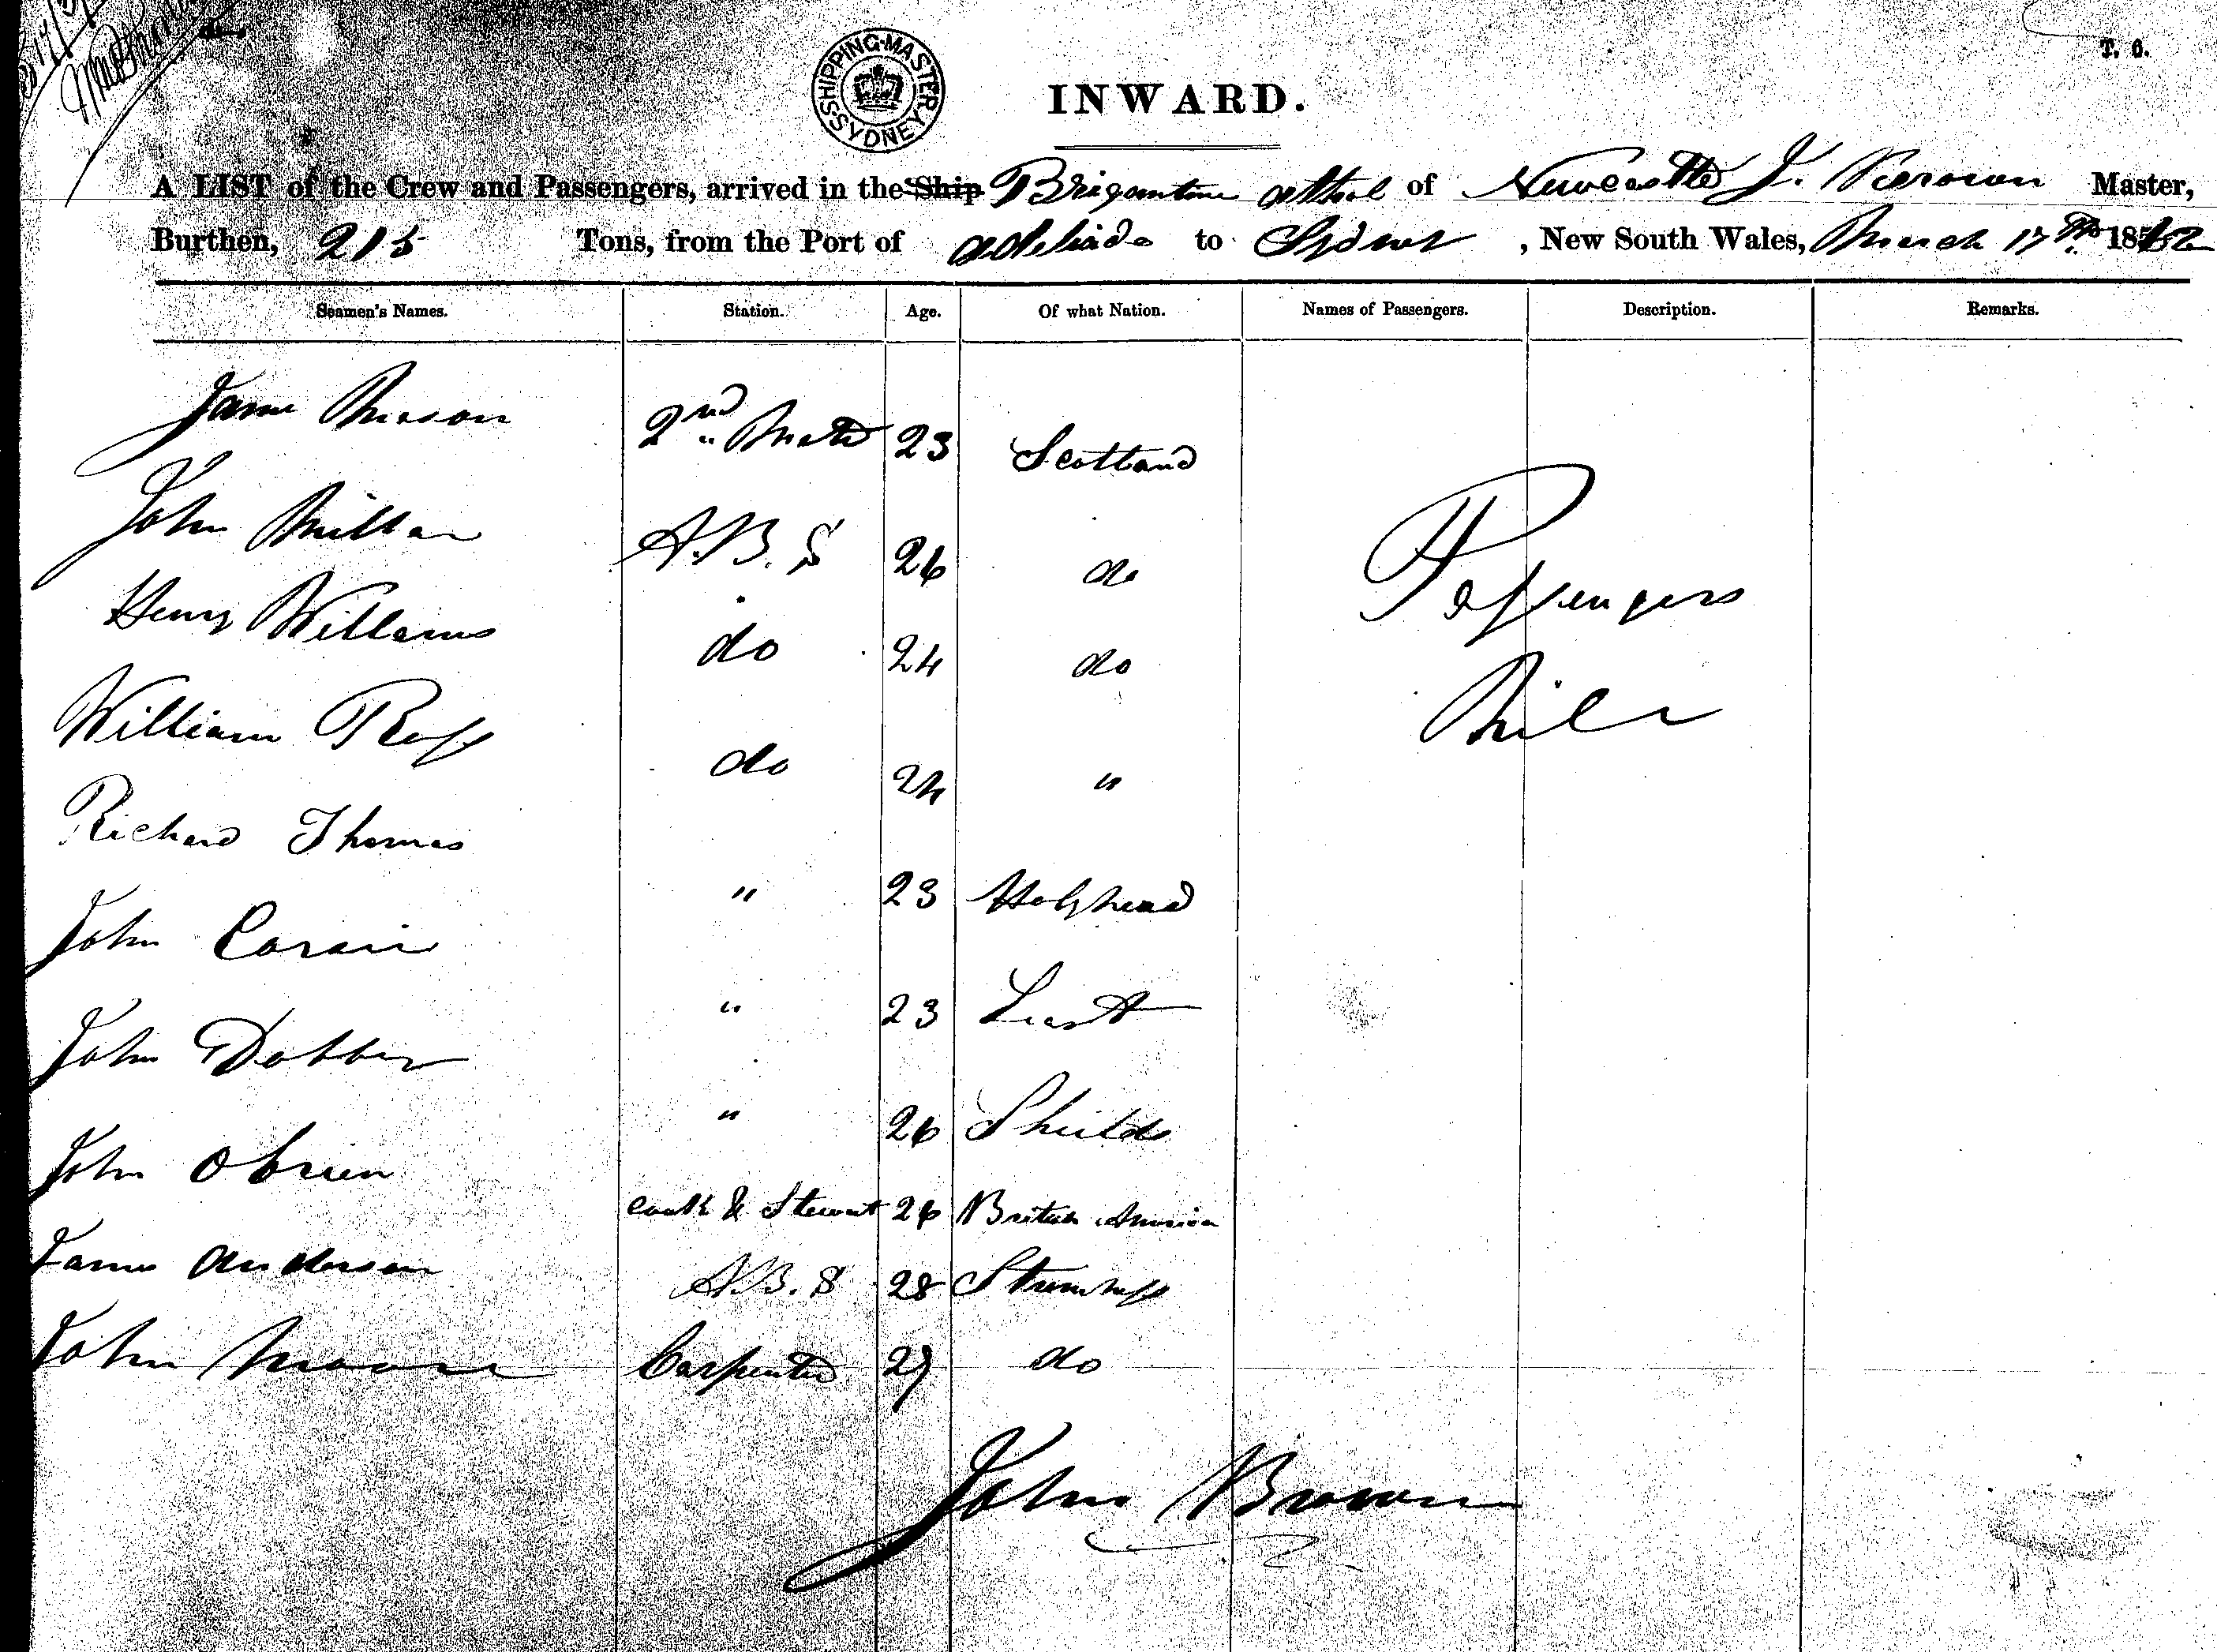 SHIPPING MASTER SYDNEY
T. 6.
INWARD.
A LIST of the Crew and Passengers, arrived in the Ship Brigantine Athol of Newcastle J. Brown Master,
Burthen, 215 Tons, from the Port of Adelaide to Sydney, New South Wales, March 17th 1862
Seamen's Names. Station. Age. Of what Nation. Names of Passengers. Description. Remarks.
James Mason 2nd Mate 23 Scotland
John Millar A.B.S 26 do
Henry Williams do 24 do
William Ross do 24 "
Richard Thomas " 23 Holyhead
John " 23
John " 26 Shields
John Obrien Cook & Stewart 26 British America
James Anderson A.B.S 28
John Moore Carpenter 29 do
Passengers
Nil
John Brown